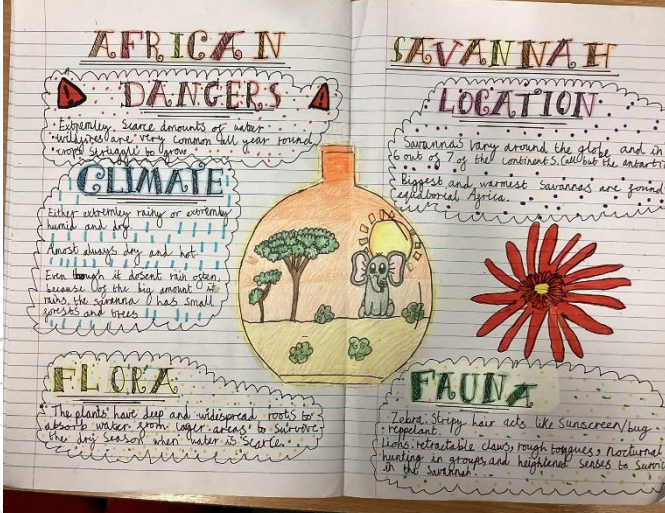 AFRICAN SAVANNAH
DANGERS
• Extremley scarce amounts of water
• wildfires are very common all year round
• crops struggle to grow
CLIMATE
Either extremley rainy or extremley
humid and dry
Amost always dry and hot
Even though it dosent rain often,
because of the big amount it
rains, the savanna has small
forests and trees
FLORA
• The plants have deep and widespread roots to
absorb water from lager areas to survive
the dry season when water is scarce.
LOCATION
Savannas vary around the globe and in
6 out of 7 of the continents. (all but the antarti
Biggest and warmest Savannas are found
equatoreal Africa.
FAUNA
Zebra: Stripy hair acts like Sunscreen/bug
repelant.
Lions: retractable claws, rough tongues, nocturnal
hunting in groups, and heightened senses to Surviv
in the Savannah.